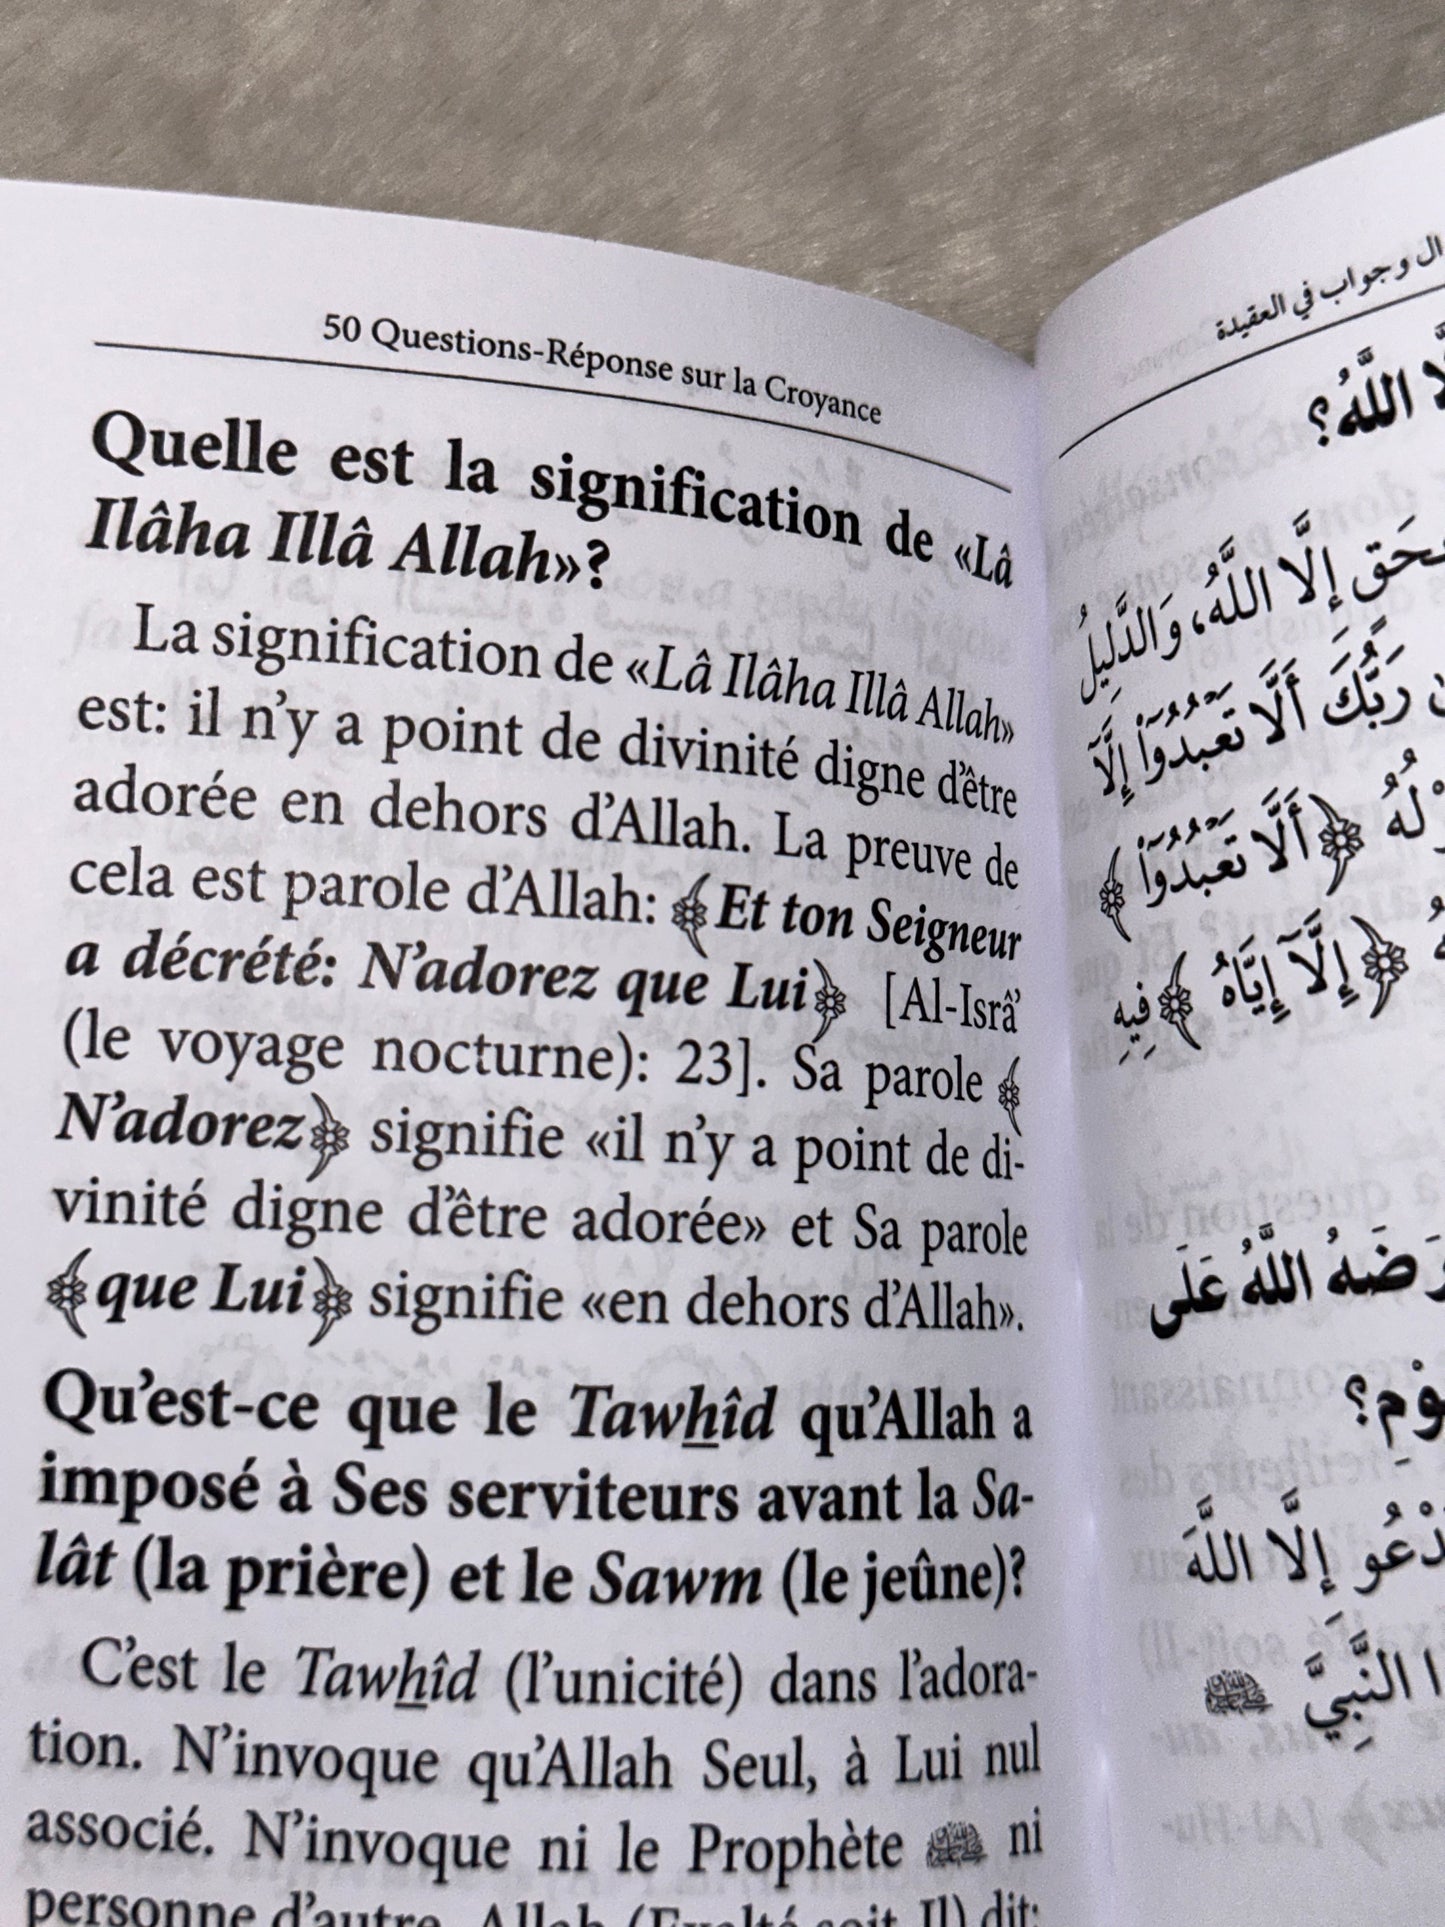 50 Questions-Réponse sur la Croyance
Quelle est la signification de «Lâ
Ilâha Illâ Allah»?
La signification de «Lâ Ilâha Illâ Allah»
est: il n’y a point de divinité digne d’être
adorée en dehors d’Allah. La preuve de
cela est parole d’Allah: ﴾Et ton Seigneur
a décrété: N’adorez que Lui﴿ [Al-Isrâ’
(le voyage nocturne): 23]. Sa parole ﴾
N’adorez﴿ signifie «il n’y a point de di-
vinité digne d’être adorée» et Sa parole
﴾que Lui﴿ signifie «en dehors d’Allah».
Qu’est-ce que le Tawhîd qu’Allah a
imposé à Ses serviteurs avant la Sa-
lât (la prière) et le Sawm (le jeûne)?
C’est le Tawhîd (l’unicité) dans l’adora-
tion. N’invoque qu’Allah Seul, à Lui nul
associé. N’invoque ni le Prophète ﷺ ni
personne d’autre. Allah (Exalté soit-Il) dit:
وجواب في العقيدة
اللَّهُ؟
إِلَّا اللَّهُ، وَالدَّلِيلُ
رَبُّكَ أَلَّا تَعْبُدُوٓا۟ إِلَّآ
﴿أَلَّا تَعْبُدُوٓا۟﴾
﴿إِلَّآ إِيَّاهُ﴾ فِيهِ
اللَّهُ عَلَى
إِلَّا اللَّهَ
النَّبِيَّ ﷺ